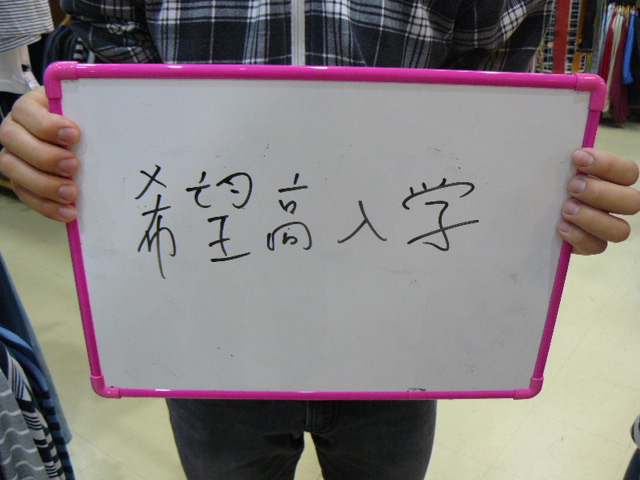 希望高入学